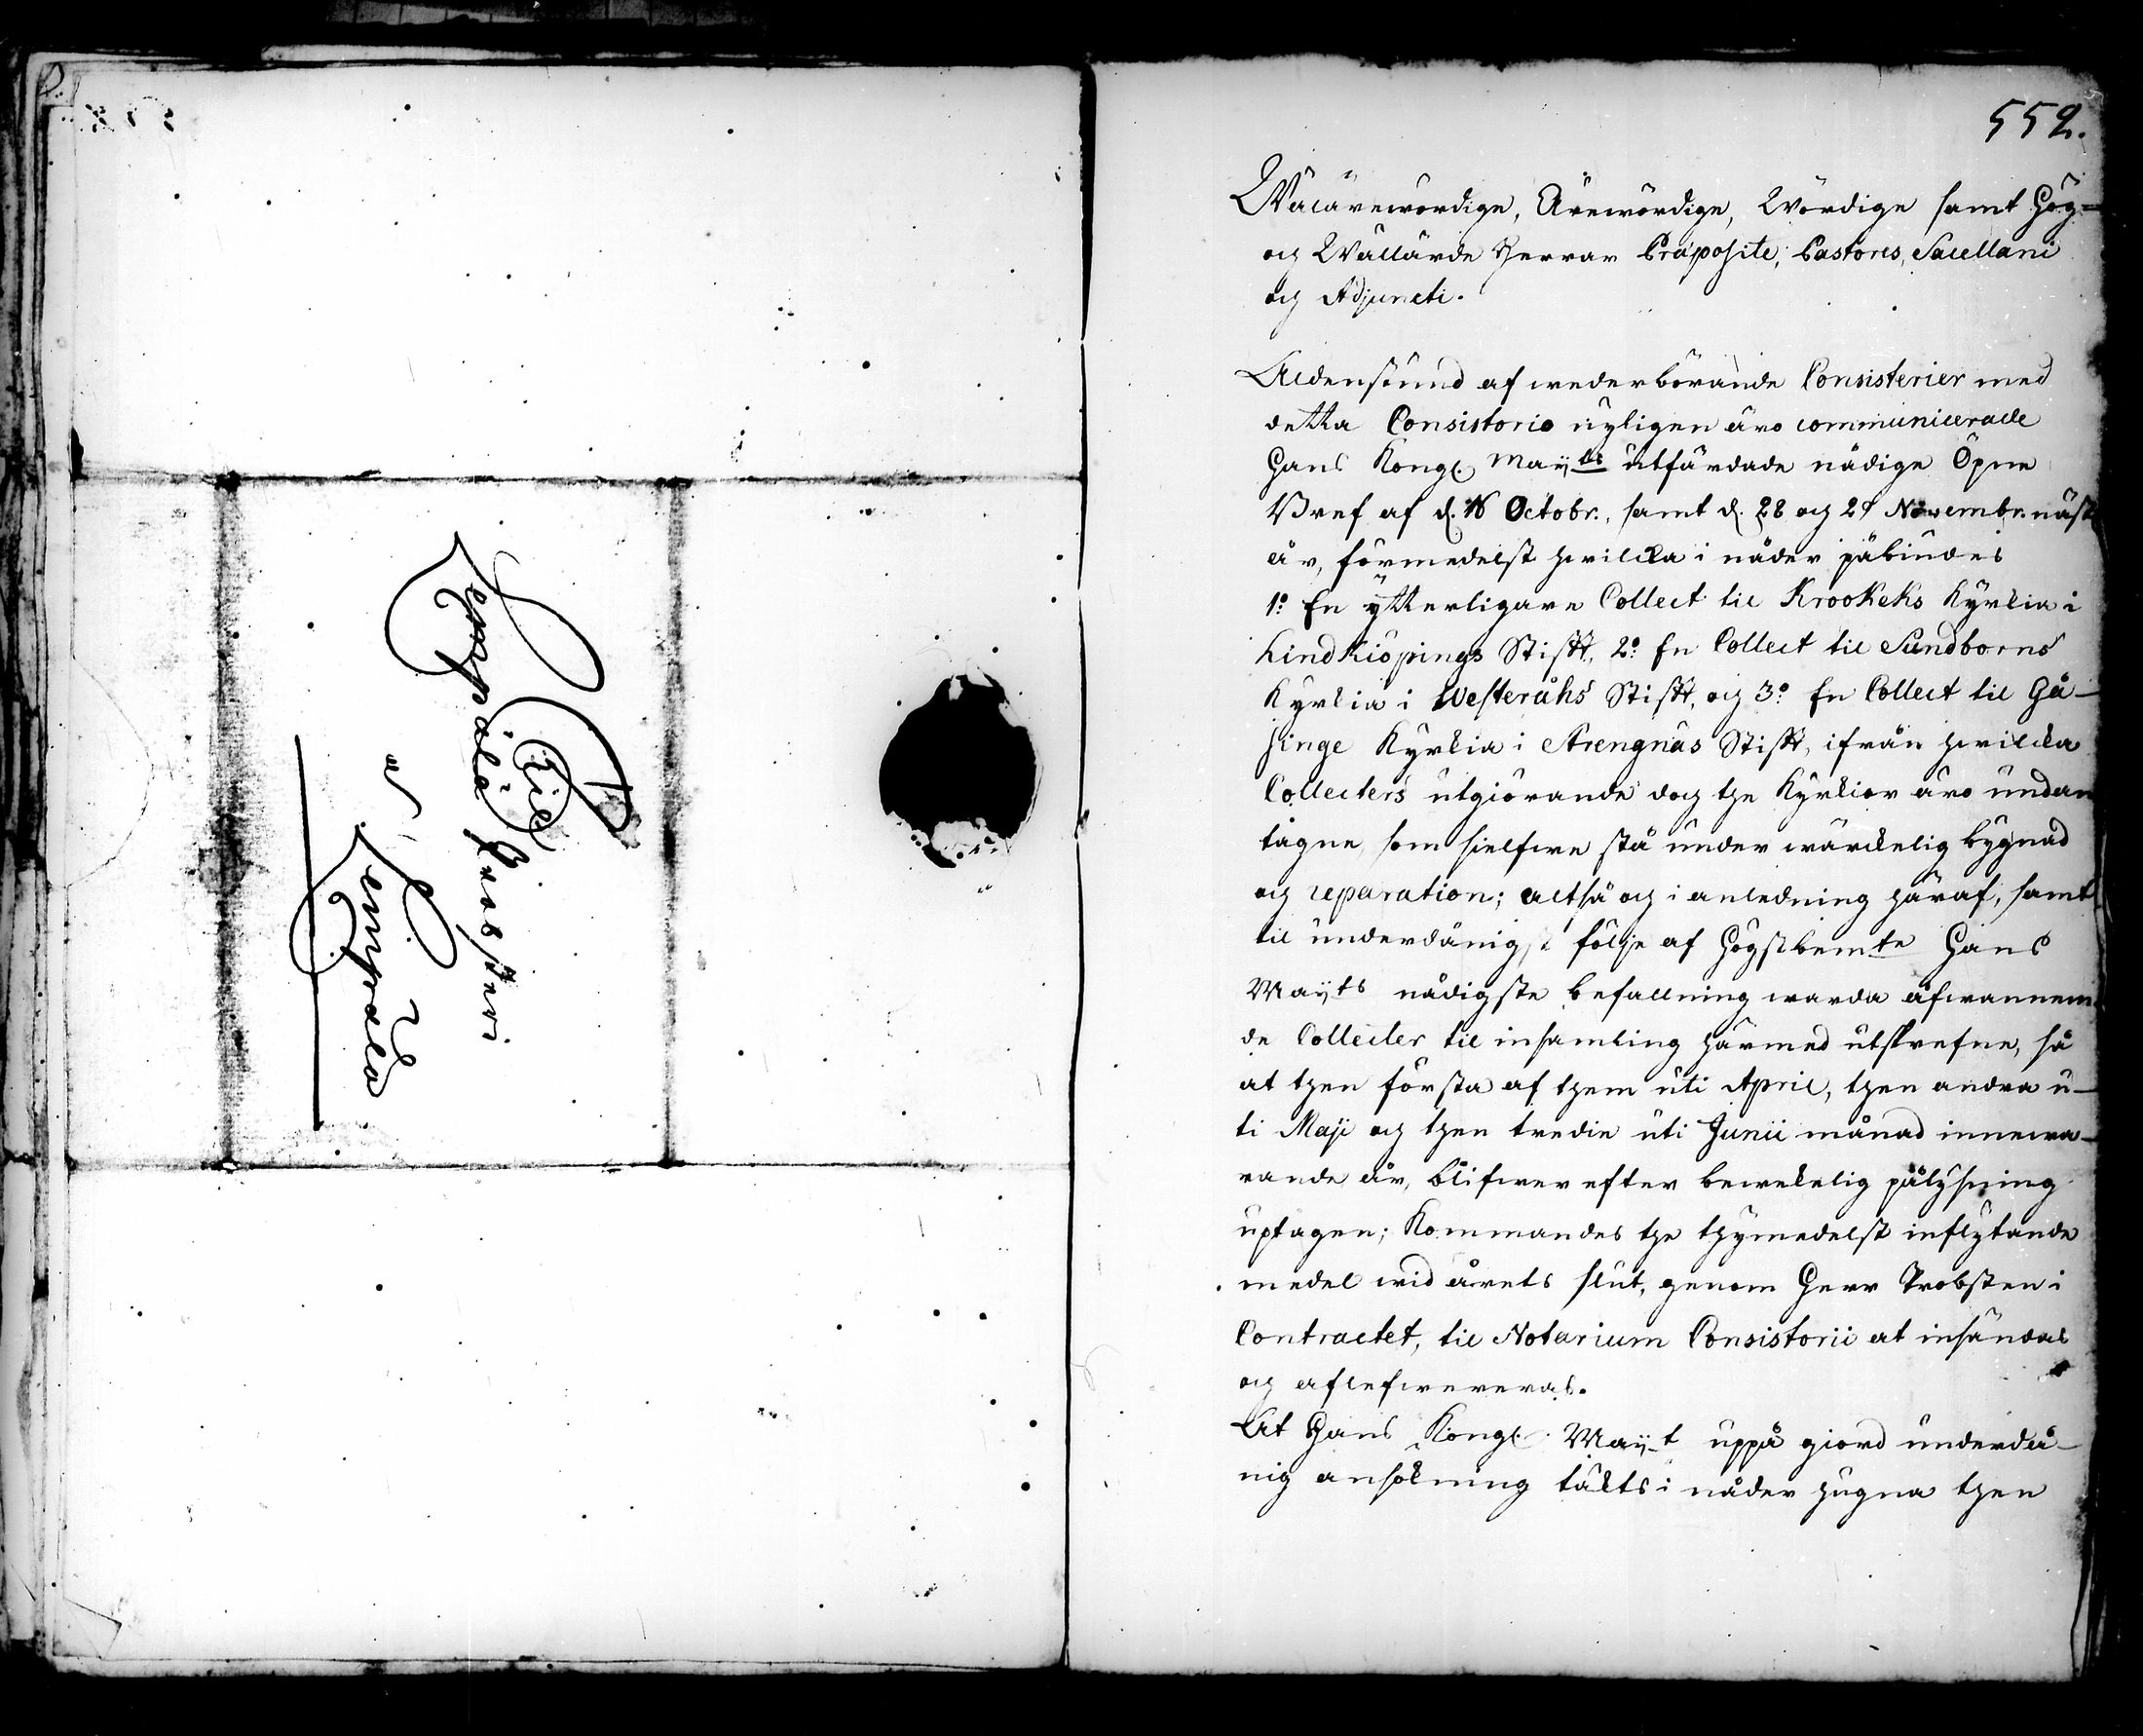 Til
Lempälä Probsteri
a
Lempälä
552.
Wälärewördige, Ärewördige, Wördige samt Hög-
og Wällärde Herrar Præposite, Pastores, Sacellani
og Adjuncti.
Aldenstund af wederbörande Consistorier med
detta Consistorio nyligen äro communicerade
Hans Kongl. Maij:ts utfärdade nådige Öpne
Bref af d. 16 Octobr., samt d. 28 og 29 Novembr. näst
år, förmedelst hwilcka i nåder påbiudes
1:o En ytterligare Collect til Krookeks Kyrkia i
Lindkiöpings Stifft, 2:o En Collect til Sundborns
Kyrkia i Westeråhs Stifft, og 3:o En Collect til Gå-
singe Kyrkia i Strengnäs Stifft, ifrån hwilcka
Collecters utgiörande dog the Kyrkior äro undan
tagne, som sielfwe stå under wärckelig bygnad
og reparation; altså og i anledning häraf, samt
til underdånigst följe af Högstbem:te Hans
Maij:ts nådigste befallning warda åfwannem-
de Collecter til insamling härmed utskrefne, så
at then första af them uti April, then andra u-
ti Maji og then tredie uti Junii månad innewa-
rande år, blifwer efter bewekelig pålysning
uptagen; Kommandes the thymedelst inflytande
medel wid årets slut, genom Herr Probsten i
Contractet, til Notarium Consistorii at insändas
og aflefwereras.
At Hans Kongl. Maij:t uppå giord underdå-
nig ansökning täkts i nåder hugna then